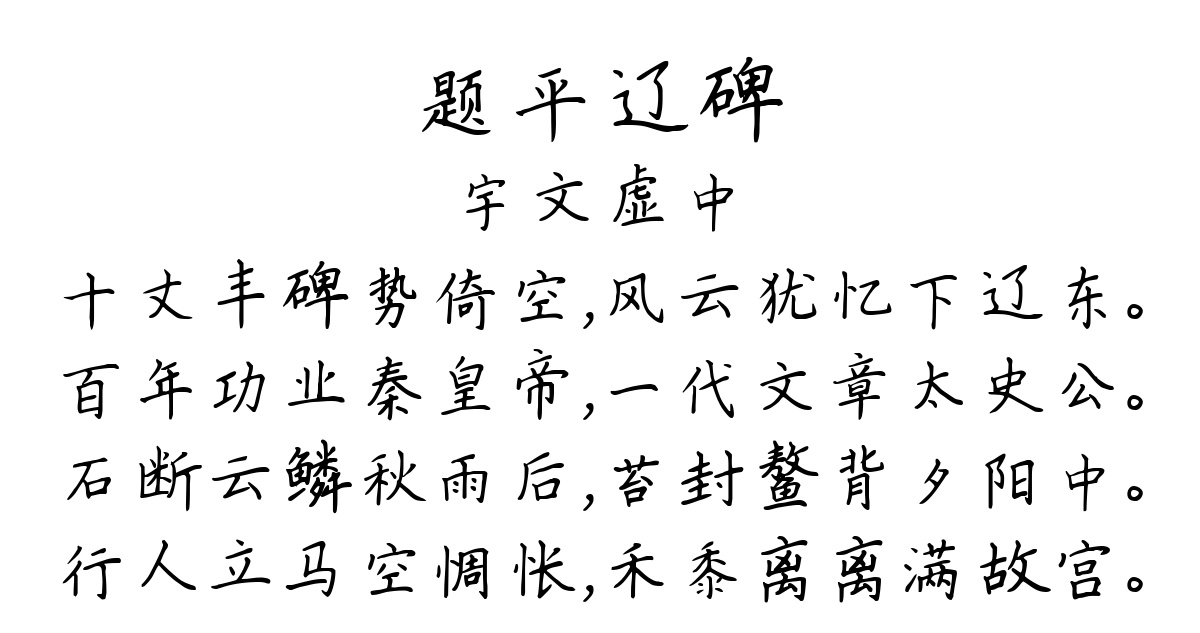 题平辽碑
宇文虚中
十丈丰碑势倚空,风云犹忆下辽东。
百年功业秦皇帝,一代文章太史公。
石断云鳞秋雨后,苔封鳌背夕阳中。
行人立马空惆怅,禾黍离离满故宫。